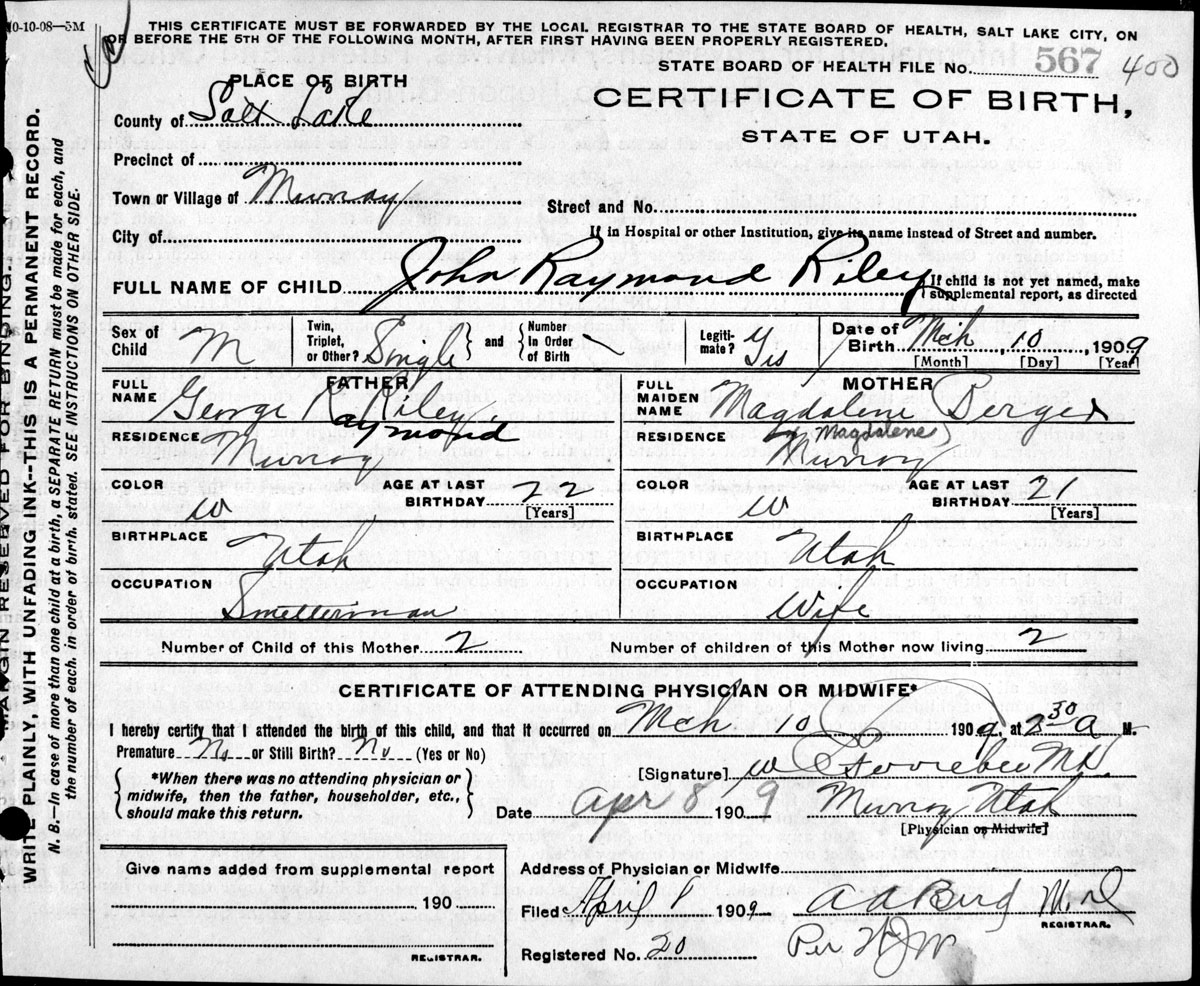 10-10-08—5M
THIS CERTIFICATE MUST BE FORWARDED BY THE LOCAL REGISTRAR TO THE STATE BOARD OF HEALTH, SALT LAKE CITY, ON
OR BEFORE THE 5TH OF THE FOLLOWING MONTH, AFTER FIRST HAVING BEEN PROPERLY REGISTERED.
STATE BOARD OF HEALTH FILE No. 567 400
PLACE OF BIRTH
CERTIFICATE OF BIRTH,
STATE OF UTAH.
County of Salt Lake
Precinct of
Town or Village of Murray
Street and No.
City of
If in Hospital or other Institution, give its name instead of Street and number.
FULL NAME OF CHILD John Raymond Riley
If child is not yet named, make
supplemental report, as directed
Sex of Child M
Twin, Triplet, or Other? Single
and
Number In Order of Birth
Legiti- mate? Yes
Date of Birth Mch, 10, 1909
[Month] [Day] [Year]
FATHER
FULL NAME George Raymond Riley
MOTHER
FULL MAIDEN NAME Magdalene Berger
Magdalene
RESIDENCE Murray
RESIDENCE Murray
COLOR W
AGE AT LAST BIRTHDAY 22
[Years]
COLOR W
AGE AT LAST BIRTHDAY 21
[Years]
BIRTHPLACE Utah
BIRTHPLACE Utah
OCCUPATION Smelterman
OCCUPATION Wife
Number of Child of this Mother 2
Number of children of this Mother now living 2
CERTIFICATE OF ATTENDING PHYSICIAN OR MIDWIFE*
I hereby certify that I attended the birth of this child, and that it occurred on Mch. 10 1909. at 2 30 a M.
Premature No or Still Birth? No (Yes or No)
*When there was no attending physician or
midwife, then the father, householder, etc.,
should make this return.
[Signature] W MD.
Date Apr 8 1909 Murray Utah
[Physician or Midwife]
Give name added from supplemental report
190
REGISTRAR.
Address of Physician or Midwife
Filed April 8 1909 A A Berg M.D
REGISTRAR.
Registered No. 20 Per
MARGIN RESERVED FOR BINDING.
WRITE PLAINLY, WITH UNFADING INK—THIS IS A PERMANENT RECORD.
N. B.—In case of more than one child at a birth, a SEPARATE RETURN must be made for each, and
the number of each, in order of birth, stated. SEE INSTRUCTIONS ON OTHER SIDE.